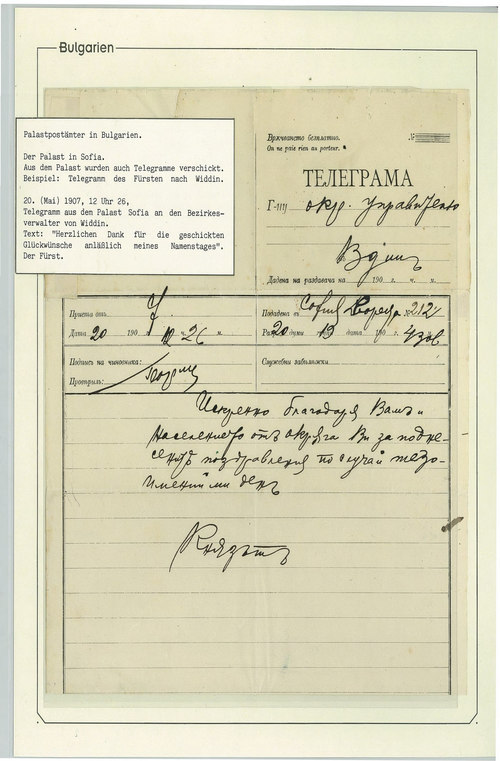 Bulgarien
Palastpostämter in Bulgarien.
Der Palast in Sofia.
Aus dem Palast wurden auch Telegramme verschickt.
Beispiel: Telegramm des Fürsten nach Widdin.
20. (Mai) 1907, 12 Uhr 26,
Telegramm aus dem Palast Sofia an den Bezirkes-
verwalter von Widdin.
Text: "Herzlichen Dank für die geschickten
Glückwünsche anläßlich meines Namenstages".
Der Fürst.
Връчването безплатно.
On ne paie rien au porteur.
№
ТЕЛЕГРАМА
Г-ну окр. Управителю
Видинъ
Дадена на раздавача на 190 г. ч. м.
Приета отъ
Дата 20 190 ч. 26 м.
Подпись на чиновника:
Прочтрилъ:
Подадена въ София Дворецъ 212
20 думи 19 дата 190
Служебни забѣлѣжки
Искренно благодаря Вамъ и
населението отъ окрѫга Ви за подне-
сенитѣ поздравления по случай тезо-
именний ми день
Князътъ